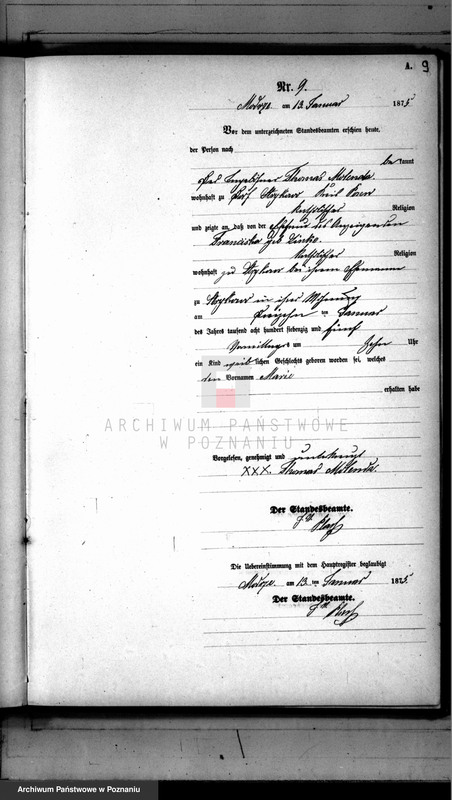 A. 9
Nr. 9.
am 13 Januar 1875
Vor dem unterzeichneten Standesbeamten erschien heute,
der Person nach
be kannt
Thomas
wohnhaft zu Dorf
katholischer Religion
und zeigte an, daß von der Ehefrau des Anzeigenden
Franciska geb
katholischer Religion
wohnhaft zu bei ihrem Ehemann
zu in ihrer Wohnung
am ten Januar
des Jahres tausend acht hundert siebenzig und fünf
Vormittags um zehn Uhr
ein Kind weib lichen Geschlechts geboren worden sei, welches
den Vornamen Marie
erhalten habe
ARCHIWUM PAŃSTWOWE
W POZNANIU
Vorgelesen, genehmigt und unterkreuzt
XXX. Thomas
Der Standesbeamte.
Die Uebereinstimmung mit dem Hauptregister beglaubigt
am 13 ten Januar 1875
Der Standesbeamte.
Archiwum Państwowe w Poznaniu